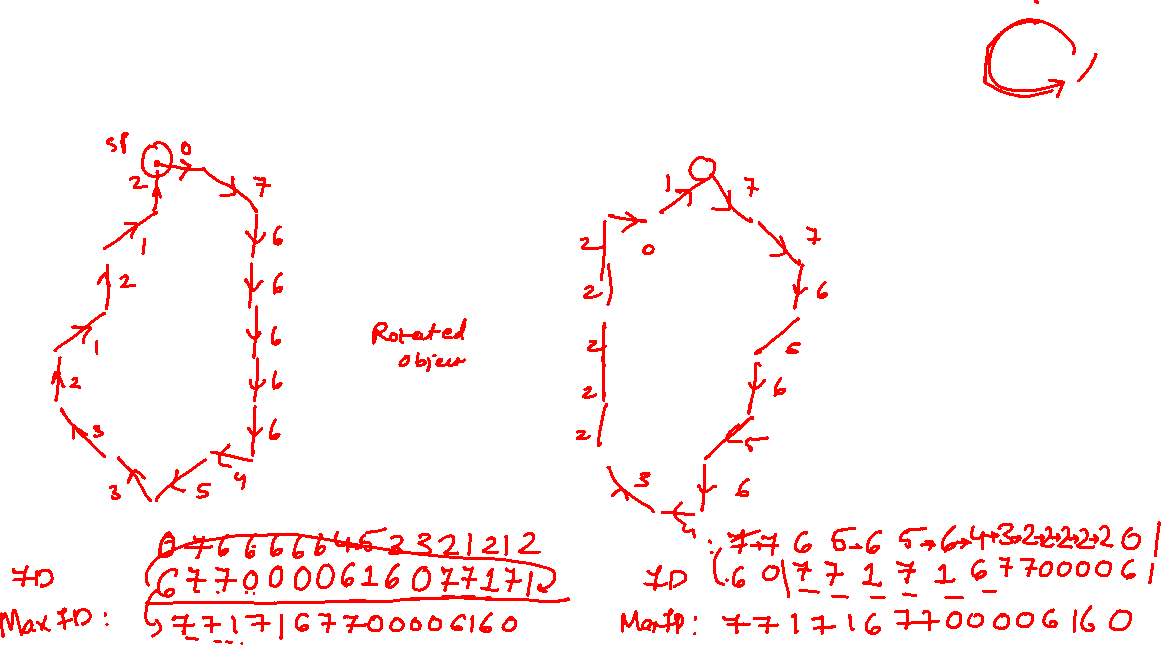 SP
0
7
6
6
6
6
6
4
5
3
3
2
1
2
1
2
Rotated
Object
1
7
7
6
5
6
5
6
4
3
2
2
2
2
2
0
0 7 6 6 6 6 6 4 5 3 3 2 1 2 1 2
FD 6 7 7 0 0 0 0 6 1 6 0 7 7 1 7 1
Max FD: 7 7 1 7 1 6 7 7 0 0 0 0 6 1 6 0
: 7→7 6 5→6 5→6→4→3→2→2→2→2→2 0 1
FD 6 0 7 7 1 7 1 6 7 7 0 0 0 0 6 1
Max FD: 7 7 1 7 1 6 7 7 0 0 0 0 6 1 6 0